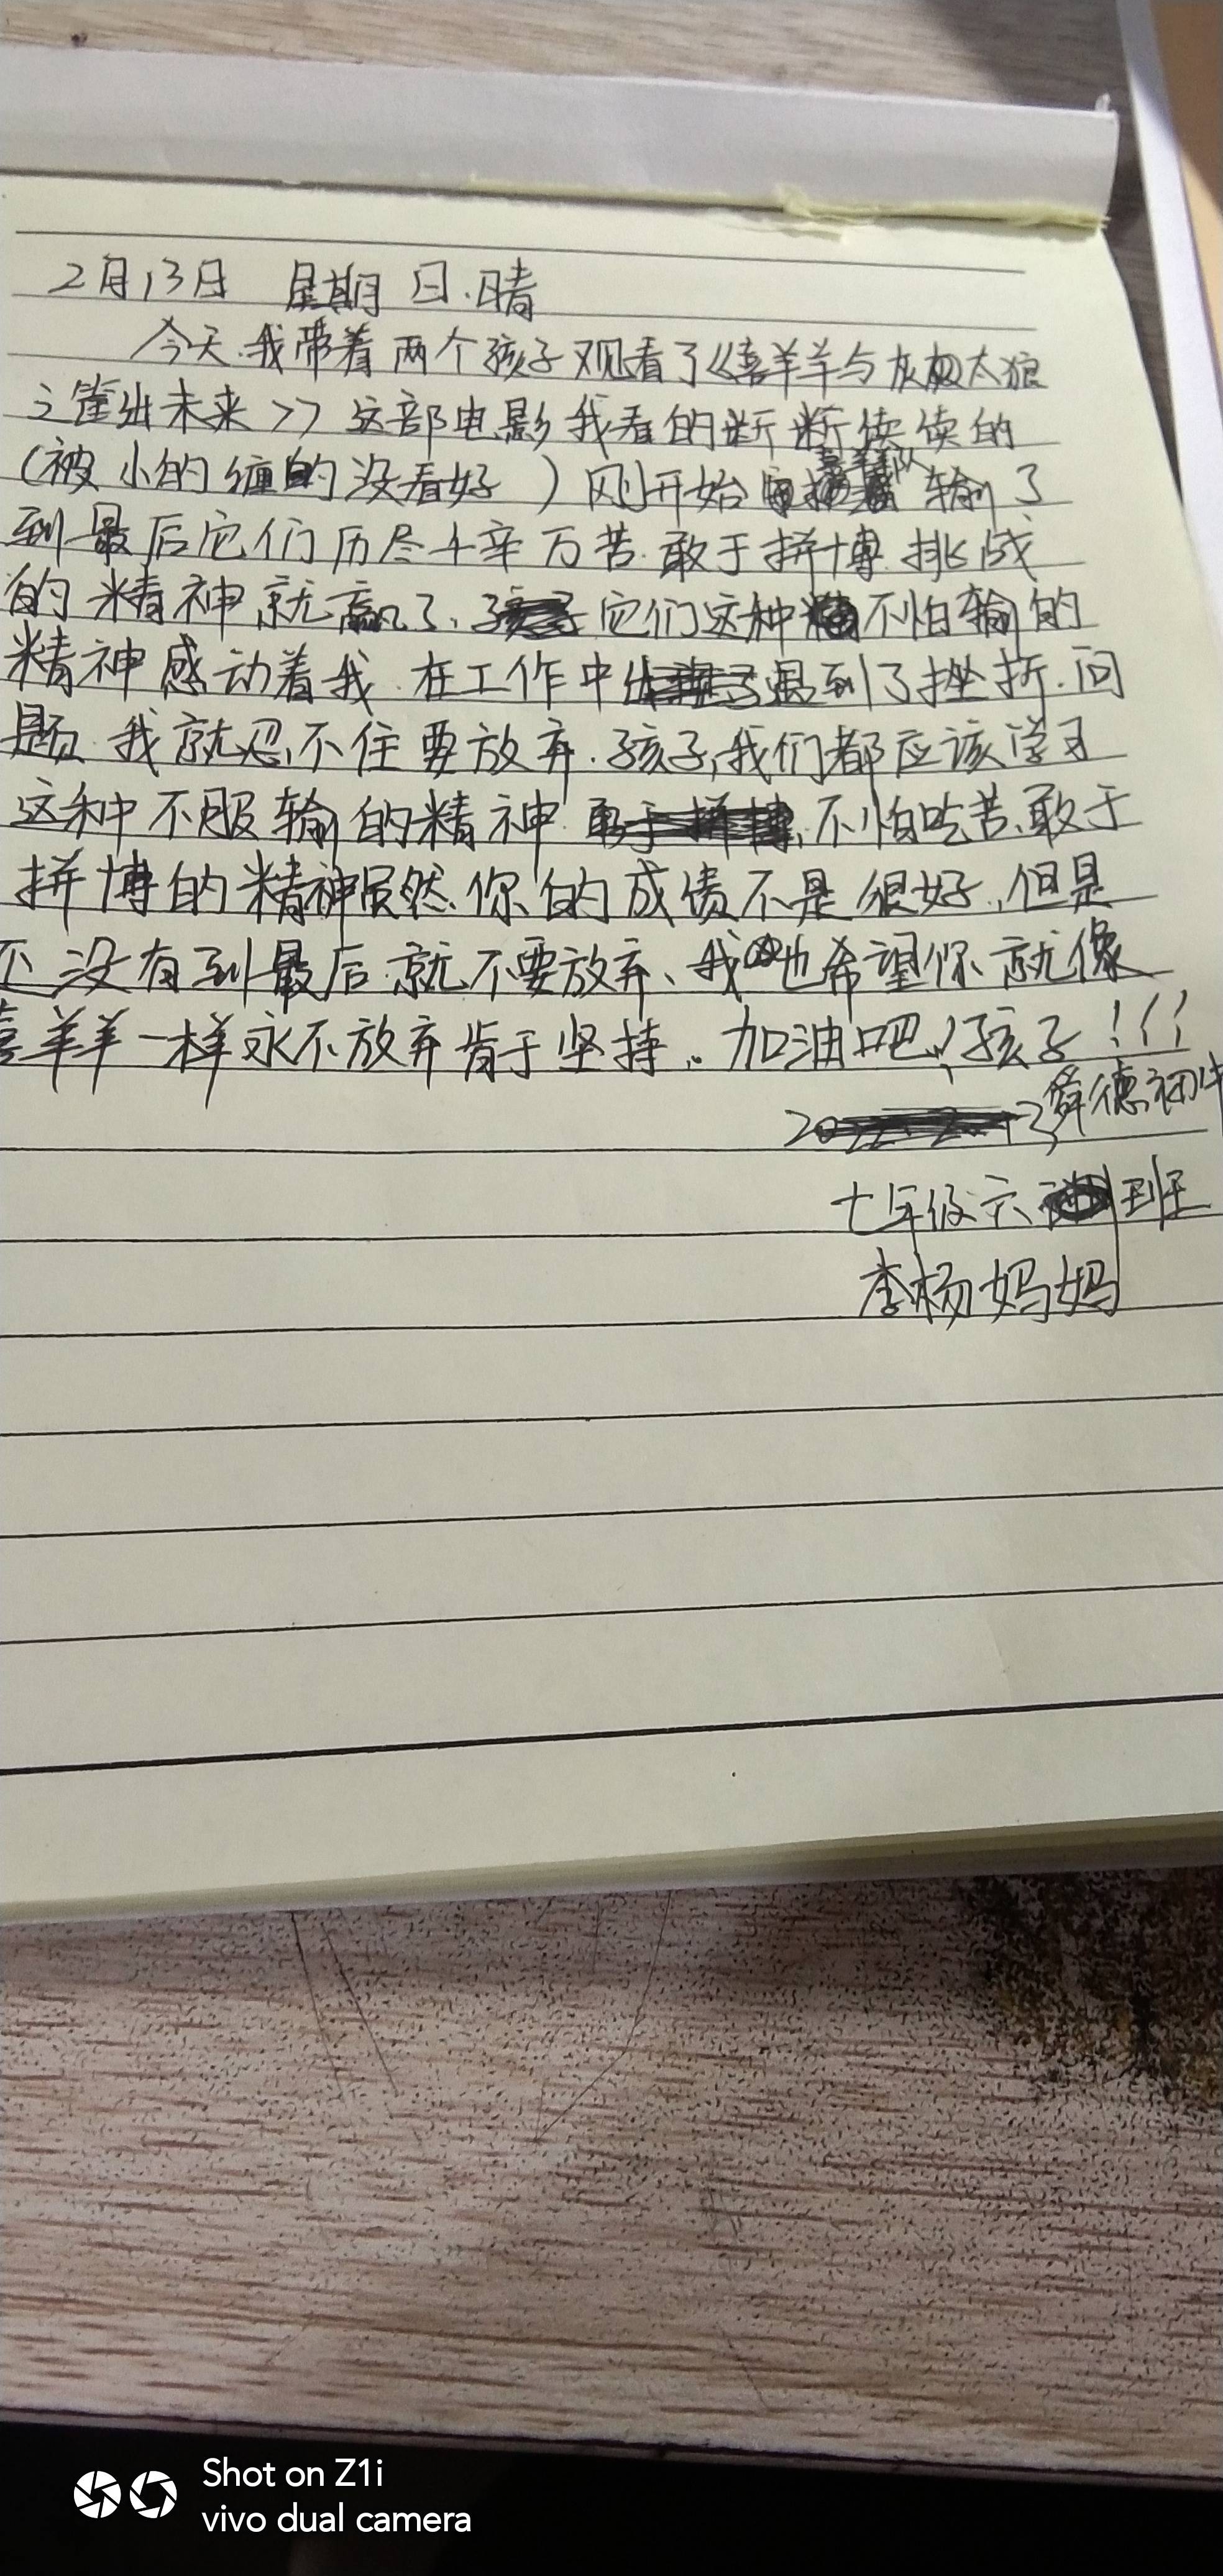 2月13日 星期日.晴
今天.我带着两个孩子观看了《喜羊羊与灰太狼
之筐出未来>>这部电影我看的断断续续的
(被小的缠的没看好)刚开始 输了
到最后它们历尽千辛万苦.敢于拼博.挑战
的精神就赢了.它们这种不怕输的
精神感动着我.在工作中遇到了挫折.问
题.我就忍不住要放弃.孩子,我们都应该学习
这种不服输的精神.不怕吃苦.敢于
拼博的精神虽然.你的成绩不是很好.,但是
还没有到最后.就不要放弃、我也希望你就像
喜羊羊一样永不放弃肯于坚持..加油吧!孩子!!!
舜德初中
七年级六班
李杨妈妈
Shot on Z1i
vivo dual camera